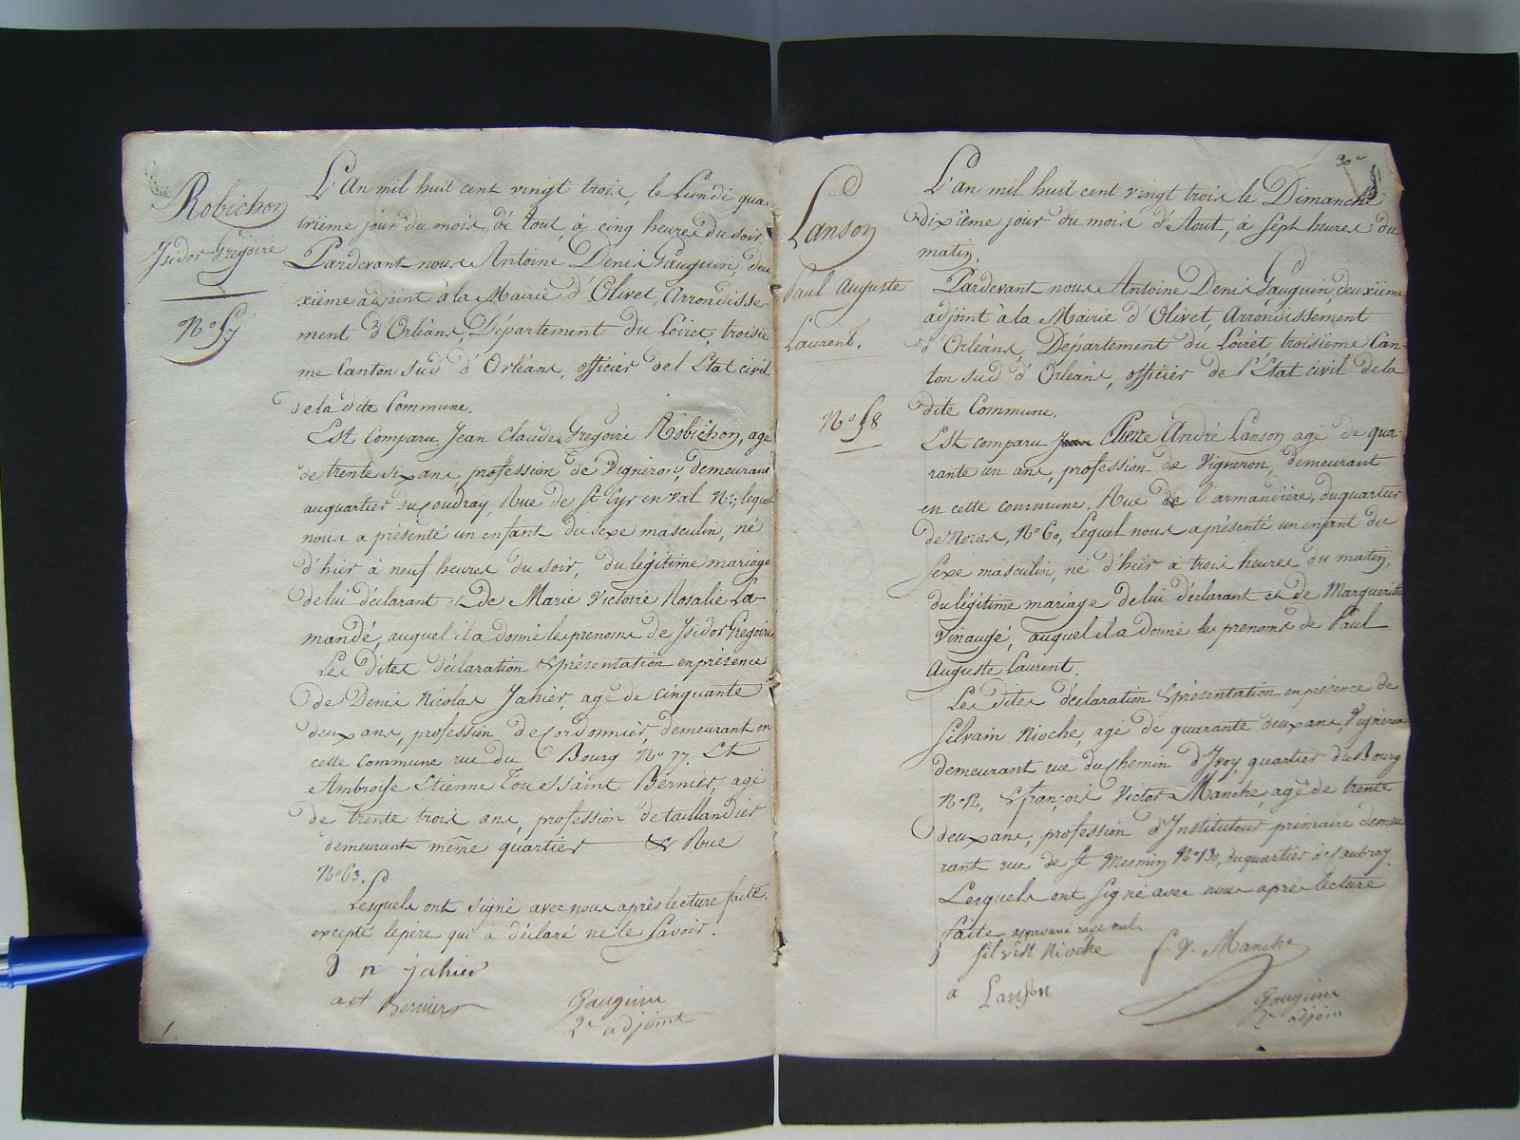 Robichon
Isidor Grégoire
N° 57
L'An mil huit cent vingt trois, le Lundi qua-
trième jour du mois d'Aout, à cinq heures du soir,
Pardevant nous Antoine Denis Gauguin, deu
xième adjoint à la Mairie d'Olivet, Arrondisse-
ment d'Orléans, Département du Loiret, troisiè
me Canton sud d'Orléans, officier de l'Etat civil
de la dite Commune.
Est Comparu Jean Claude Grégoire Robichon, agé
de trente six ans, profession de Vigneron, demeurant
au quartier du Coudray, Rue de St Cyr en Val N° lequel
nous a présenté un enfant du Sexe masculin, né
d'hier à neuf heures du soir, du légitime mariage
de lui déclarant et de Marie Victoire Rosalie La-
mandé, auquel il a donné les prenoms de Isidor Gregoire
Les dites déclaration & présentation en présence
de Denis Nicolas Jahier, agé de cinquante
deux ans, profession de Cordonnier, demeurant en
cette Commune rue du Bourg N° 77. Et
Ambroise Etienne Toussaint Bernier, agé
de trente trois ans, profession de taillandier
demeurant même quartier & Rue
N° 63.
Lesquels ont signé avec nous après lecture faite.
excepté le père qui a déclaré ne le Savoir.
D n jahier
aet Bernier
Gauguin
2e adjoint
30e
Lanson
Paul Auguste
Laurent.
N° 58
L'an mil huit cent vingt trois le Dimanche
dixième jour du mois d'Aout, à Sept heures du
matin.
Pardevant nous Antoine Denis Gauguin, deuxième
adjoint à la Mairie d'Olivet, Arrondissement
d'Orléans, Département du Loiret troisième Can-
ton sud d'Orléans, officier de l'Etat civil de la
dite Commune.
Est comparu Jean Pierre André Lanson agé de qua-
rante un ans, profession de Vigneron, demeurant
en cette commune, Rue de l'armandière, du quartier
de Noras, N° 60, Lequel nous a présenté un enfant du
Sexe masculin, né d'hier à trois heures du matin,
du légitime mariage de lui déclarant et de Marguerite
Vinaugé, auquel il a donné les prenoms de Paul
Auguste Laurent.
Les dites déclaration & présentation en présence de
Silvain Rioche, agé de quarante deux ans, Vigneron
demeurant rue du Chemin d'Ivoy, quartier du Bourg
N° 12, & françois Victor Manche, agé de trente
deux ans, profession d'Instituteur primaire demeu
rant rue de St Mesmin N° 130, du quartier de Caubray.
Lesquels ont signé avec nous après lecture
faite approuvé rayé nul.
Rioche f v. Manche
a Lanson
Gauguin
2e adjoin